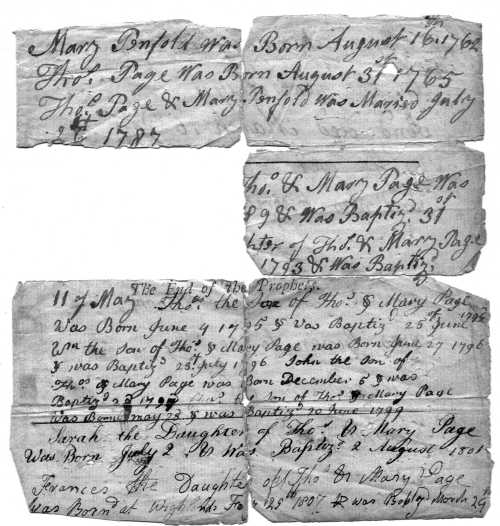 Mary Penfold Was Born August 16th 1762
Thos. Page Was Born August 31st 1765
Thos. Page & Mary Penfold Was Maried July
1787
Thos. & Mary Page Was
89 & Was Baptizd. 31st
hter of Thos. & Mary Page
1793 & Was Baptizd.
The End of the Prophets.
11 of May Thos. the Son of Thos. & Mary Page
Was Born June 4 1795 & Was Baptizd. 25th June 1795
Wm the Son of Thos. & Mary Page was Born June 27 1796
& was Baptizd. 25th July 1796 John the Son of
Thos. & Mary Page was Born December 5 & was
Baptizd. 1797 Son of Thos. & Mary Page
Was Born may 23 & was Baptizd. 20 June 1799
Sarah the Daughter of Thos. & Mary Page
Was Born July 2 & Was Baptizd. 2 August 1801
Frances The Daughter of Thos. & Mary Page
was Born at 25th 1807 & was March 29